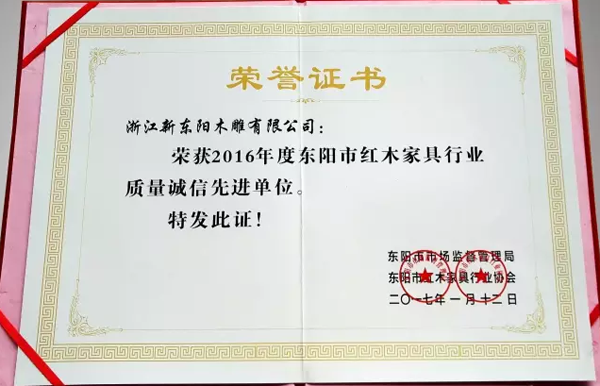 荣誉证书
浙江新东阳木雕有限公司：
荣获2016年度东阳市红木家具行业
质量诚信先进单位。
特发此证！
东阳市市场监督管理局
东阳市红木家具行业协会
二〇一七年一月十二日